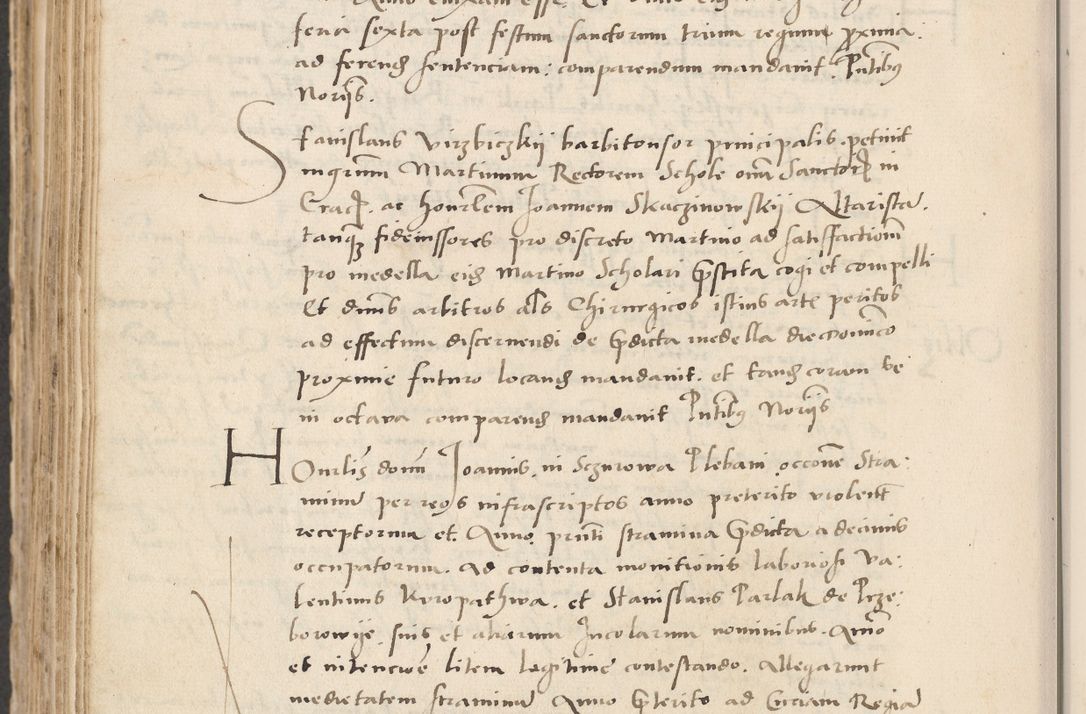 feria sexta post festum sanctorum trium regum proxima.
ad ferend sentenciam: comparendum mandavit. Pntibus
Norijs.
Stanislaus Virzbiczkij barbitonsor principalis. petivit
in grum Martinum Rectorem Schole omni Sanctor in
Crac. ac honorlem Joannem Skaczinowskij Altarista.
tanq fideiussores pro discreto Martino ad satisfactionem
pro medella eid Martino Scholari prestita cogi et compelli
Et dnus arbitros als Chirurgicos istius arte peritos
ad effectum discernendi de predicta medella die dominico
proxime futuro locand mandavit. et tand coram se
in octava comparend mandavit Pntibus Norijs
Honrlis domi Joannis. in Sczurowa Plebani. occone Stra:
minu per reos infrascriptos anno preterito violent
receptorum et Anno prnti stramina predicta a decimis
occupatorum. Ad contenta monitionis laboriosi Va:
lentinus Kuropathwa. et Stanislaus Parlak de Prze:
borowije suis et aliarum Incolarum nominibus. Animo
et intencione litem legitime contestando. Allegarunt
medietatem straminu Anno preterito ad Curiam Regia